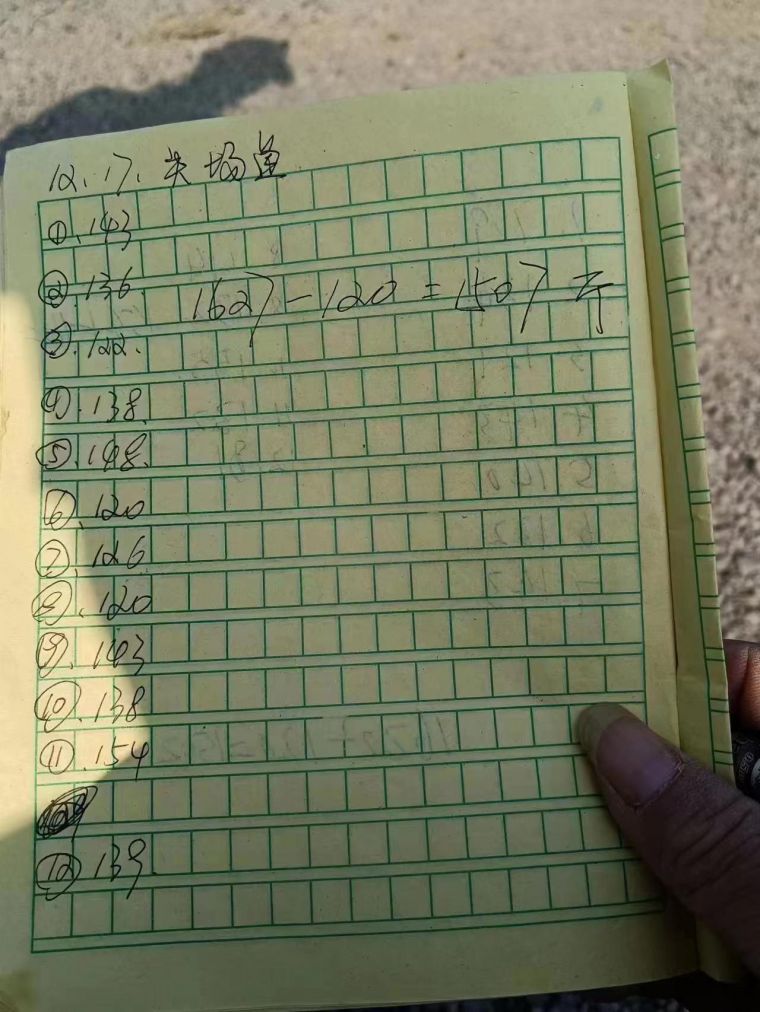 12.17. 场
①.143
②.136
1627-120=1507斤
③.122.
④.138.
⑤.148.
⑥.120
⑦.126
⑧.120
⑨.143
⑩.138
⑪.154
⑫139.